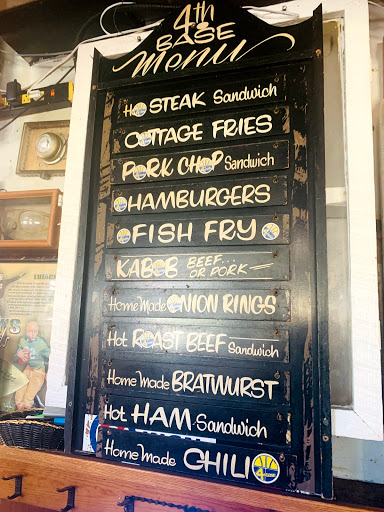 4th
BASE
Menu
Hot STEAK Sandwich
COTTAGE FRIES
PORK CHOP Sandwich
HAMBURGERS
FISH FRY
KABOB BEEF...
OR PORK
Home Made ONION RINGS
Hot ROAST BEEF Sandwich
Home Made BRATWURST
Hot HAM Sandwich
Home Made CHILI